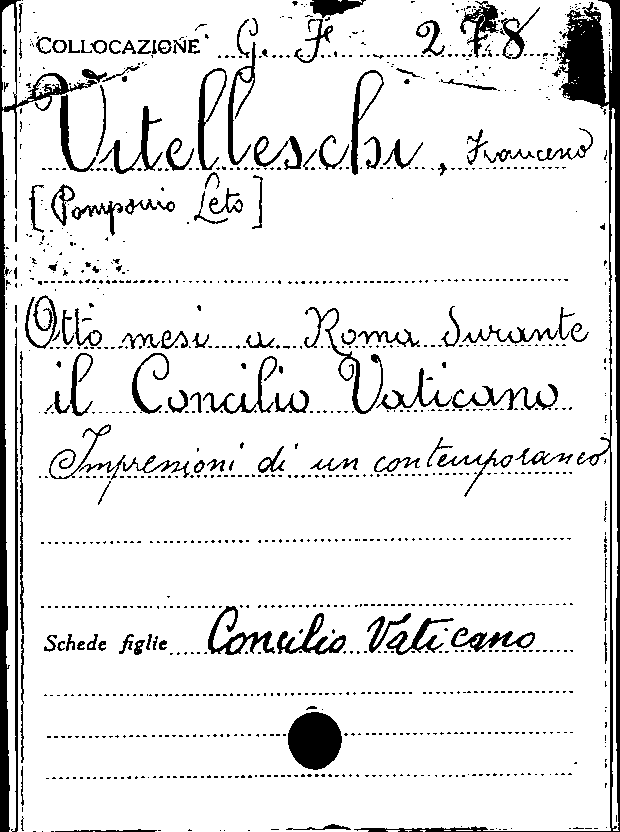 COLLOCAZIONE G. F. 278
Vitelleschi, Francesco
[Pomponio Leto]
Otto mesi a Roma durante
il Concilio Vaticano
Impressioni di un contemporaneo
Schede figlie Concilio Vaticano